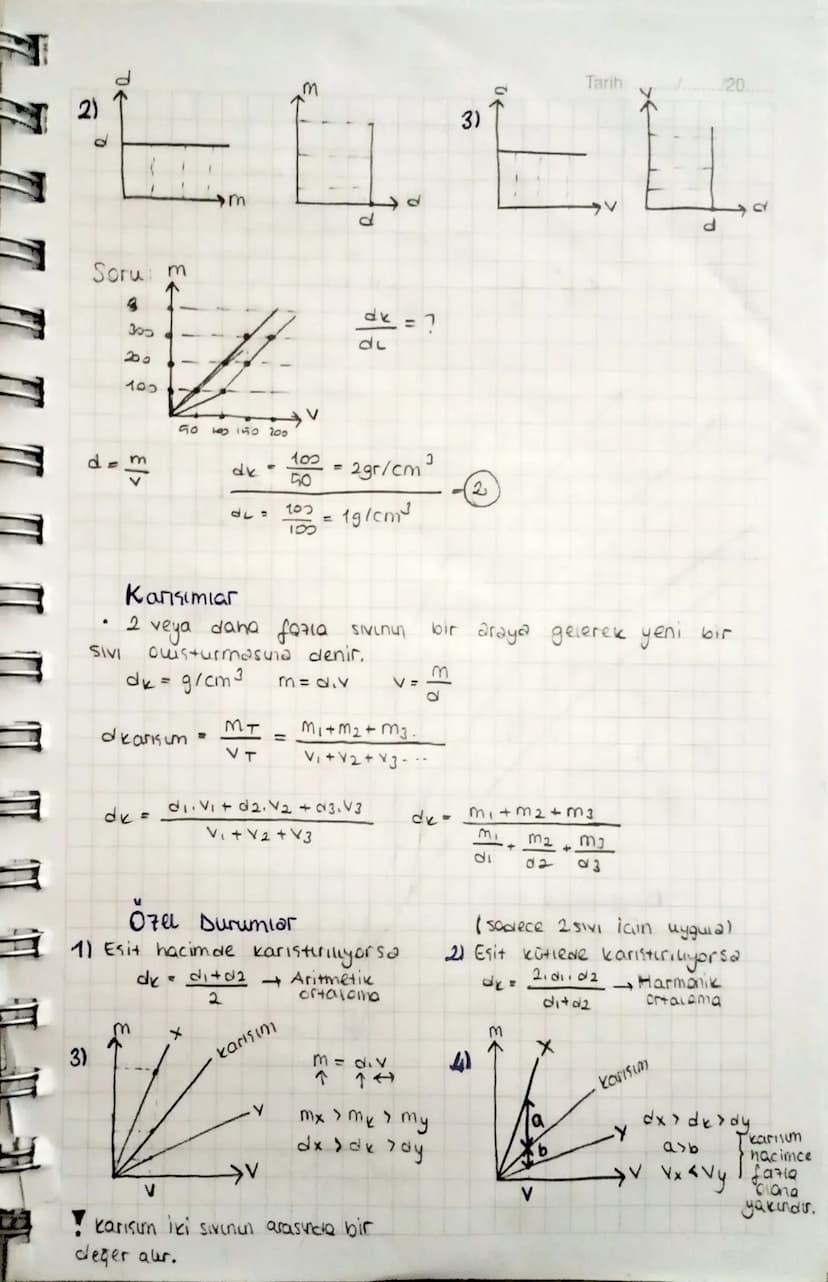 Tarih ....../....../20.....
2) d d m
m d d
3) d v
v d d
Soru: m
g
300
200
100
50 100 150 200 v
dk/dL = ?
d = m/v
dk = 100/50 = 2gr/cm³
dL = 100/100 = 1g/cm³
= 2
Karışımlar
• 2 veya daha fazla sıvının bir araya gelerek yeni bir
sıvı oluşturmasına denir.
dk = g/cm³ m = d.v v = m/d
dkarışım = MT/VT = m1+m2+m3./v1+v2+v3...
dk = d1.v1+d2.v2+d3.v3/v1+v2+v3 dk = m1+m2+m3/m1/d1 + m2/d2 + m3/d3
Özel Durumlar
1) Eşit hacimde karıştırılıyorsa
dk = d1+d2/2 → Aritmetik
ortalama
(sadece 2 sıvı için uygula)
2) Eşit kütlede karıştırılıyorsa
dk = 2.d1.d2/d1+d2 → Harmonik
ortalama
3) m x karışım
y v
v
m = d.v
↑ ↑ ↔
mx > mk > my
dx > dk > dy
4) m x karışım
a b y v
v
dx > dk > dy
a>b
Vx < Vy
karışım
hacimce
fazla
olana
yakındır.
! Karışım iki sıvının arasında bir
değer alır.